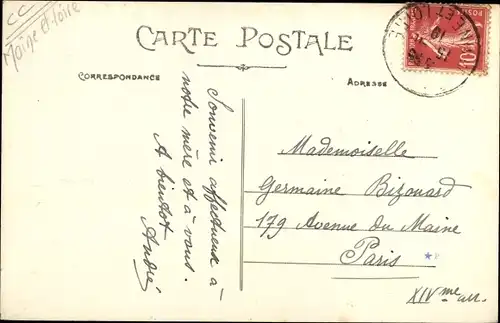 CC
Maine et Loire
CARTE POSTALE
CORRESPONDANCE
ADRESSE
Souvenir affectueux à
notre mère et à vous.
A bientôt
André
Mademoiselle
Germaine Bizouard
179 Avenue du Maine
Paris
XIVme arr.
10
3-35
15
10
NE ET LOIRE